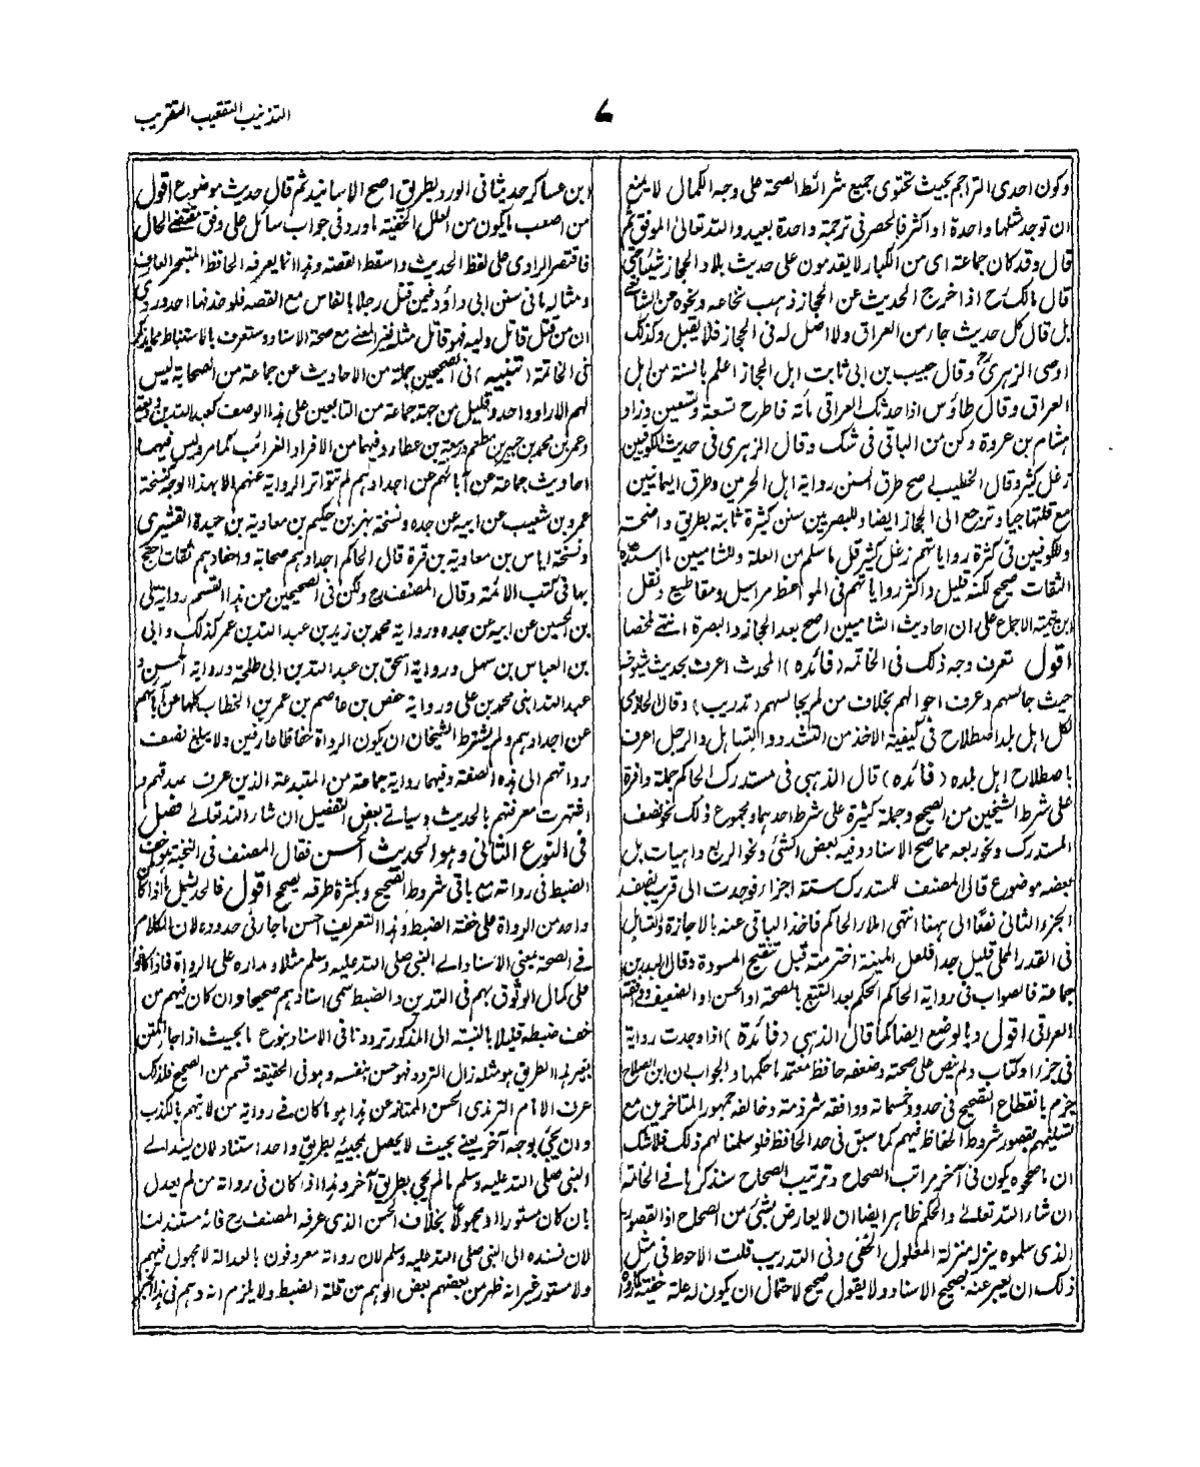 التذنيب التعقيب التقريب
٦
وكون احدى التراجم بحيث تحتوى جميع شرائط الصحة على وجه الكمال لا يمنع
ان توجد مثلها واحدة او اكثر فالحصر فى ترجمة واحدة بعيد والله تعالى الموفق ثم
قال وقد كان جماعة اى من الكبار لا يقدمون على حديث بلاد الحجاز شيئا حتى
قال مالك رح اذا خرج الحديث عن الحجاز ذهب نخاعه ونحوه عن الشافعي
بل قال كل حديث جاء من العراق ولا اصل له فى الحجاز فلا يقبل وكذلك
اوصى الزهرى وقال حبيب بن ابى ثابت اهل الحجاز اعلم بالسنة من اهل
العراق وقال طاؤس اذا حدثك العراقى مأته فاطرح تسعة وتسعين وزاد
هشام بن عروة وكن من الباقى فى شك وقال الزهرى فى حديث الكوفيين
زغل كثير وقال الخطيب اصح طرق السنن رواية اهل الحرمين وطرق اليمانيين
مع قلتها جياد وترجع الى الحجاز ايضا وللبصريين سنن كثيرة ثابتة بطريق واضحة
وللكوفيين فى كثرة رواياتهم زغل كثير قل ما سلم من العلة وللشاميين ما اسنده
الثقات صحيح لكنه قليل واكثر رواياتهم فى المواعظ مراسيل ومقاطيع ونقل
ابن تيمية الاجماع على ان احاديث الشاميين اصح بعد الحجاز والبصرة انتهى ملخصا
اقول تعرف وجه ذلك فى الخاتمه (فائده) المحدث اعرف بحديث شيوخه
حيث جالسهم وعرف احوالهم بخلاف من لم يجالسهم (تدريب) وقال الحازمى
لكل اهل بلد اصطلاح فى كيفية الاخذ من التشدد والتساهل والرجل اعرف
باصطلاح اهل بلده (فائده) قال الذهبى فى مستدرك الحاكم جملة وافرة
على شرط الشيخين من الصحيح وجملة كثيرة على شرط احدهما ومجموع ذلك نحو نصف
المستدرك ونحو ربعه مما صح الاسناد وفيه بعض الشئ ونحو الربع واهيات بل
بعضه موضوع قال المصنف المستدرك ستة اجزاء فوجدت الى قريب نصف
الجزء الثانى فقال الى ههنا انتهى املاء الحاكم فاخذ الباقى عنه بالاجازة والتساهل
فى القدر المملى قليل جدا فلعل المنية اخترمته قبل تنقيح المسودة وقال البدر بن
جماعة فالصواب فى رواية الحاكم الحكم بعد التتبع بالصحة او الحسن او الضعيف ووافقه
العراقى اقول وبالوضع ايضا كما قال الذهبى (فائدة) اذا وجدت رواية
فى جزء او كتاب ولم ينص على صحته وضعفه حافظ معتمد ما حكمها والجواب ان ابن الصلاح
يجزم بانقطاع التصحيح فى حدود خمسمائة ووافقه شرذمة وخالفه جمهور المتاخرين مع
تسليمهم بقصور شروط الحفاظ فيهم كما سبق فى حد الحافظ فلو سلمنا لهم ذلك فلا شك
ان ما صححوه يكون فى آخر مراتب الصحاح وترتيب الصحاح سنذكرها فى الخاتمة
ان شاء الله تعالى والحكم ظاهر ايضا ان لا يعارض بشئ من الصحاح اذ القصور
الذى سلموه ينزله منزلة المعلول الخفى وفى التدريب قلت الاحوط فى مثل
ذلك ان يعبر عنه بصحيح الاسناد ولا يقول صحيح لاحتمال ان يكون له علة خفية
ابن عساكر حديثا فى الورد بطريق اصح الاسانيد ثم قال حديث موضوع اقول
من اصعب ما يكون من العلل الخفية ما ورد فى جواب سائل على وفق مقتضى الحال
فاقتصر الراوى على لفظ الحديث واسقط القصة وهذا انما يعرفه الحافظ المتبحر العارف
ومثاله ما فى سنن ابى داؤد فيمن قتل رجلا بالفاس مع القصه فلو حذفها احد وروى
ان من قتل قاتل وليه فهو قاتل مثله لتغير المعنى مع صحة الاسناد وستعرف بالاستنباط مما يذكر
فى الخاتمة (تنبيه) فى الصحيحين جملة من الاحاديث عن جماعة من الصحابة ليس
لهم الا راو واحد وقليل من جهة جماعة من التابعين على هذا الوصف كعبد الله بن وديعة
وعمر بن محمد بن جبير بن مطعم وربيعة بن عطاء وفيهما من الافراد الغرائب كما مر وليس فيهما
احاديث جماعة عن آبائهم عن اجدادهم لم تتواتر الرواية عنهم الا بهذا الوجه كنسخة
عمرو بن شعيب عن ابيه عن جده ونسخة بهز بن حكيم بن معاوية بن حيدة القشيرى
ونسخة اياس بن معاوية بن قرة قال الحاكم اجدادهم صحابة واحفادهم ثقات احتج
بها فى كتب الائمة وقال المصنف رح ولكن فى الصحيحين من هذا القسم رواية على
بن الحسين عن ابيه عن جده ورواية محمد بن زيد بن عبد الله بن عمر كذلك وابى
بن العباس بن سهل ورواية اسحق بن عبد الله بن ابى طلحة ورواية الحسن و
عبد الله ابنى محمد بن على ورواية حفص بن عاصم بن عمر بن الخطاب كلها عن آبائهم
عن اجدادهم ولم يشترط الشيخان ان يكون الرواة حفاظا عارفين ولا يبلغ نصف
رواتهم الى هذه الصفة وفيهما رواية جماعة من المبتدعة الذين عرف صدقهم و
اشتهرت معرفتهم بالحديث وسياتى بعض التفصيل ان شاء الله تعالى فصل
فى النوع الثانى وهو الحديث الحسن فقال المصنف فى النخبة هو خف
الضبط فى رواته مع باقى شروط الصحيح وبكثرة طرقه يصحح اقول فالحد يشمل ما اذا كان
واحد من الرواة على خفة الضبط وهذا التعريف احسن ما جاء فى حدوده لان الكلام
فى الصحة بمعنى الاسناد الى النبى صلى الله عليه وسلم مثلا ومداره على الرواة فاذا كانوا
على كمال الوثوق بهم فى التدين والضبط سمى اسنادهم صحيحا وان كان فيهم من
خف ضبطه قليلا بالنسبة الى المذكور تردد نا فى الاسناد بنوع ما بحيث اذا جاء المتقن
بتغير لهذا الطريق هو مثله زال التردد فهو حسن بنفسه وهو فى الحقيقة قسم من الصحيح فلذلك
عرف الامام الترمذى الحسن الممتاز عن هذا بما كان فى رواته من لا يتهم بالكذب
وان يجئ بوجه آخر يعنى بحيث لا يحصل بمجيئه بطريق واحد استناد لان يسند الى
النبى صلى الله عليه وسلم ما لم يجئ بطريق آخر وهذا اذا كان فى رواته من لم يعدل
بان كان مستورا او مجهولا بخلاف الحسن الذى عرفه المصنف رح فانه مستند لنا
لان نسنده الى النبى صلى الله عليه وسلم لان رواته معروفون بالعدالة لا مجهول فيهم
ولا مستور غير انه ظهر من بعضهم بعض الوهم من قلة الضبط ولا يلزم انه وهم فى هذا الخبر